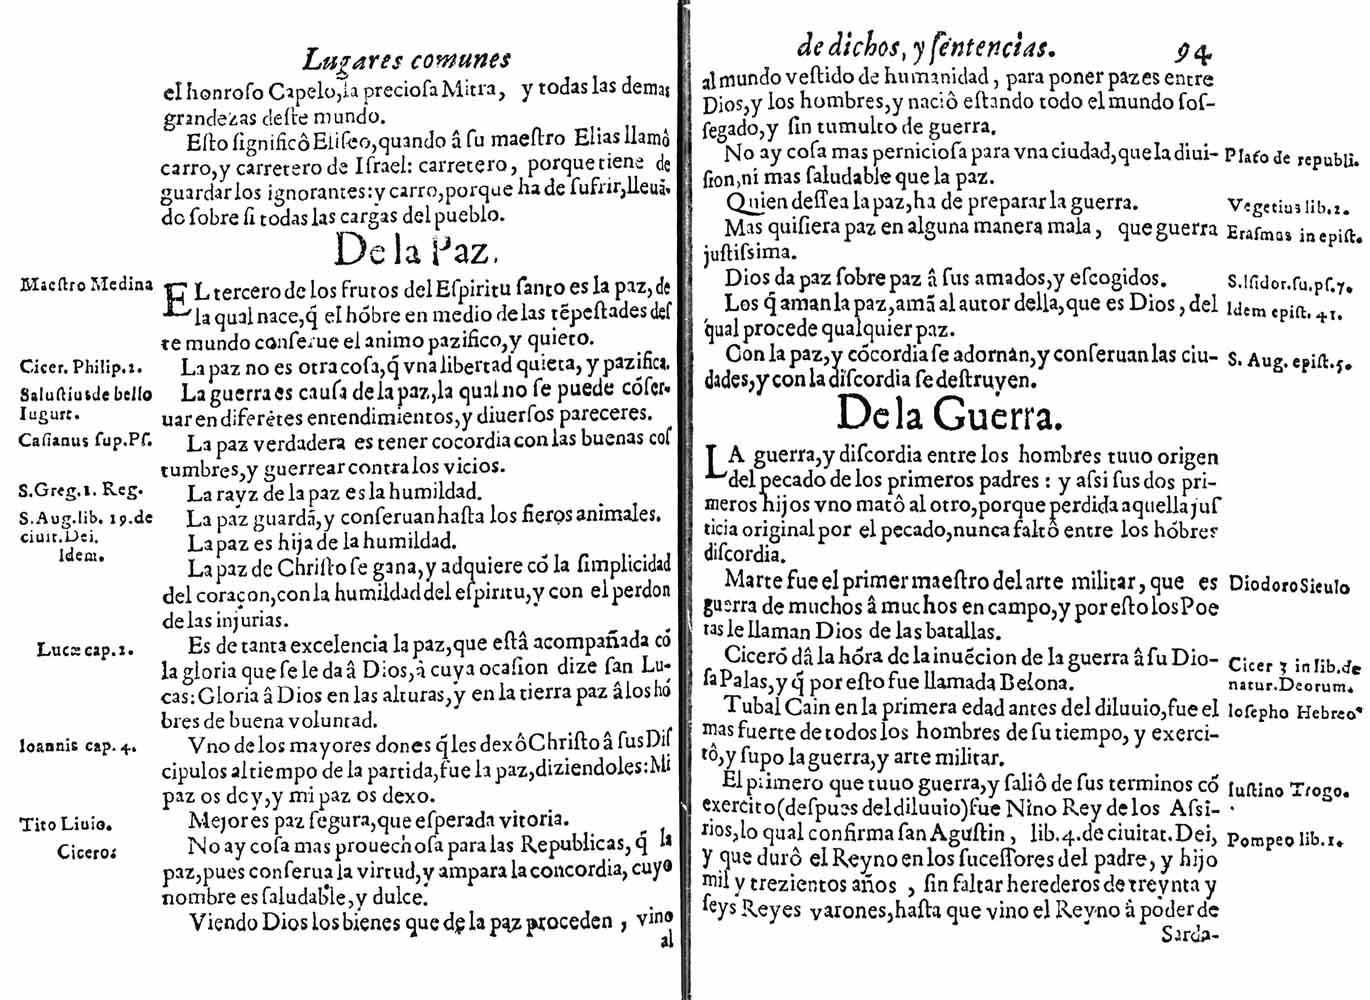 Lugares comunes
el honroſo Capelo, la precioſa Mitra, y todas las demas
grandezas deſte mundo.
Eſto ſignificô Eliſeo, quando â ſu maeſtro Elias llamô
carro, y carretero de Iſrael: carretero, porque tiene de
guardar los ignorantes: y carro, porque ha de ſufrir, lleuã-
do ſobre ſi todas las cargas del pueblo.
De la Paz.
Maeſtro Medina
EL tercero de los frutos del Eſpiritu ſanto es la paz, de
la qual nace, q̃ el hõbre en medio de las tẽpeſtades deſ
te mundo conſerue el animo pazifico, y quieto.
Cicer. Philip. 2.
La paz no es otra coſa, q̃ vna libertad quieta, y pazifica.
Saluſtius de bello
Iugurt.
La guerra es cauſa de la paz, la qual no ſe puede cõſer-
uar en diferẽtes entendimientos, y diuerſos pareceres.
Caſianus ſup. Pſ.
La paz verdadera es tener cocordia con las buenas coſ
tumbres, y guerrear contra los vicios.
S. Greg. 1. Reg.
La rayz de la paz es la humildad.
S. Aug. lib. 19. de
ciuit. Dei.
La paz guardã, y conſeruan haſta los fieros animales.
Idem.
La paz es hija de la humildad.
La paz de Chriſto ſe gana, y adquiere cõ la ſimplicidad
del coraçon, con la humildad del eſpiritu, y con el perdon
de las injurias.
Lucæ cap. 2.
Es de tanta excelencia la paz, que eſtâ acompañada cõ
la gloria que ſe le da â Dios, â cuya ocaſion dize ſan Lu-
cas: Gloria â Dios en las alturas, y en la tierra paz â los hõ
bres de buena voluntad.
Ioannis cap. 4.
Vno de los mayores dones q̃ les dexô Chriſto â ſus Diſ
cipulos al tiempo de la partida, fue la paz, diziendoles: Mi
paz os doy, y mi paz os dexo.
Tito Liuio.
Mejor es paz ſegura, que eſperada vitoria.
Cicero:
No ay coſa mas prouechoſa para las Republicas, q̃ la
paz, pues conſerua la virtud, y ampara la concordia, cuyo
nombre es ſaludable, y dulce.
Viendo Dios los bienes que de la paz proceden, vino
al
de dichos, y ſentencias. 94
al mundo veſtido de humanidad, para poner pazes entre
Dios, y los hombres, y naciô eſtando todo el mundo ſoſ-
ſegado, y ſin tumulto de guerra.
No ay coſa mas pernicioſa para vna ciudad, que la diui-
ſion, ni mas ſaludable que la paz.
Plato de republi.
Quien deſſea la paz, ha de preparar la guerra.
Vegetius lib. 2.
Mas quiſiera paz en alguna manera mala, que guerra
juſtiſsima.
Eraſmus in epiſt.
Dios da paz ſobre paz â ſus amados, y eſcogidos.
S. Iſidor. ſu. pſ. 7.
Los q̃ aman la paz, amã al autor della, que es Dios, del
qual procede qualquier paz.
Idem epiſt. 41.
Con la paz, y cõcordia ſe adornan, y conſeruan las ciu-
dades, y con la diſcordia ſe deſtruyen.
S. Aug. epiſt. 5.
De la Guerra.
LA guerra, y diſcordia entre los hombres tuuo origen
del pecado de los primeros padres: y aſsi ſus dos pri-
meros hijos vno matô al otro, porque perdida aquella juſ
ticia original por el pecado, nunca faltô entre los hõbres
diſcordia.
Marte fue el primer maeſtro del arte militar, que es
guerra de muchos â muchos en campo, y por eſto los Poe
tas le llaman Dios de las batallas.
Diodoro Siculo
Cicerõ dâ la hõra de la inuẽcion de la guerra â ſu Dio-
ſa Palas, y q̃ por eſto fue llamada Belona.
Cicer 3 in lib. de
natur. Deorum.
Tubal Cain en la primera edad antes del diluuio, fue el
mas fuerte de todos los hombres de ſu tiempo, y exerci-
tô, y ſupo la guerra, y arte militar.
Ioſepho Hebreo.
El primero que tuuo guerra, y ſaliô de ſus terminos cõ
exercito (deſpues del diluuio) fue Nino Rey de los Aſsi-
rios, lo qual confirma ſan Aguſtin, lib. 4. de ciuitat. Dei,
y que durô el Reyno en los ſuceſſores del padre, y hijo
mil y trezientos años, ſin faltar herederos de treynta y
ſeys Reyes varones, haſta que vino el Reyno â poder de
Iuſtino Trogo.
Pompeo lib. 1.
Sarda-